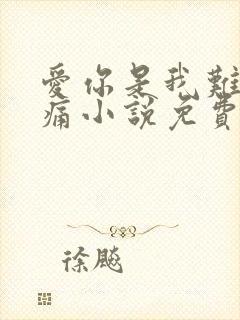 愛你是我難
痛小說免費
徐飈